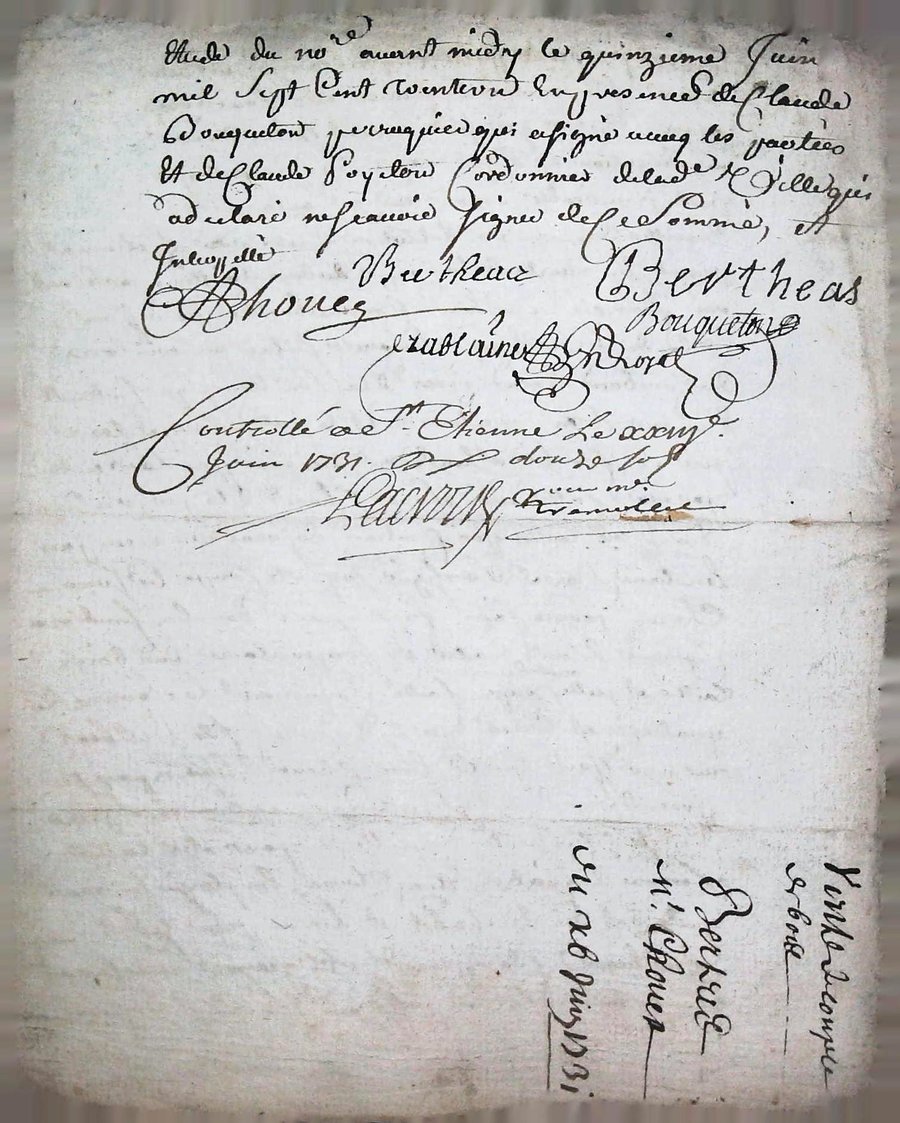 Etude du no.re avant midy le quinzieme Juin
mil Sept Cent trente un En presence de Claude
Bouqueton perruquier qui a signé avec les parties
Et de Claude Poyeton Cordonnier de lad.e Ville qui
a declaré ne scavoir signer de ce Sommé, et
Interpellé
Bertheas Bertheas
Chouez
Bouqueton
Royet
Controllé a St. Etienne Le
Juin 1731. douze sols
Lacroix
Vente de coupe
de bois
Bertrand
Mr. Chouez
du xb Juin 1731